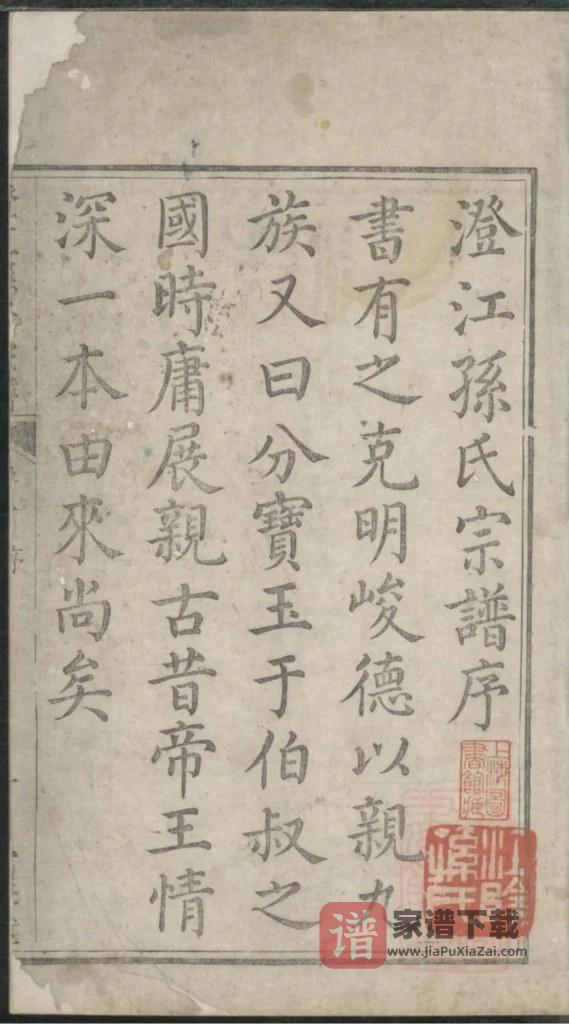 澄江孫氏宗譜序
書有之克明峻德以親九
族又曰分寶玉于伯叔之
國時庸展親古昔帝王情
深一本由來尚矣
上海圖
書館藏
谱
家谱下载
www.jiaPuXiaZai.com